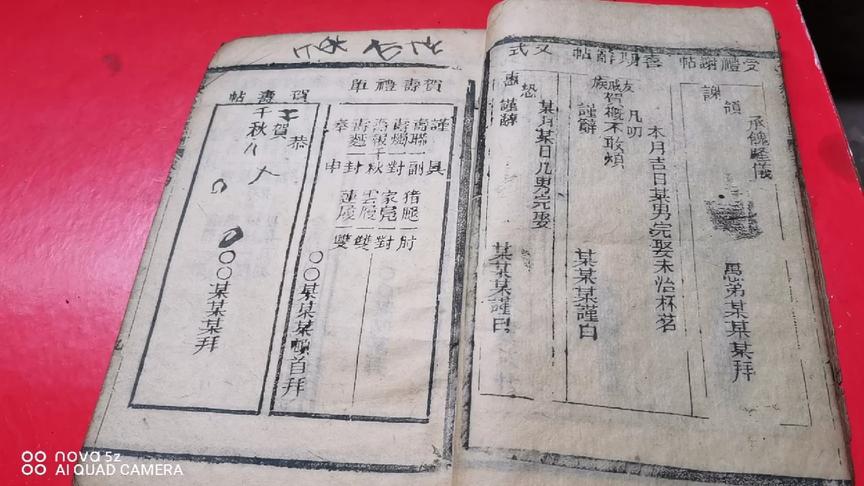 受禮謝帖
領
謝
承
儀
愚弟某某某拜
喜期辭帖
本月吉日某男完娶未治杯茗
凡叨
戚友
族賀概不敢煩
謹辭
某某某謹白
又式
某月某日凡男完娶
恐
謹辭
某某某謹白
賀壽禮單
謹具
壽聯一副
猪腿一肘
壽燭一對
家鳧一對
千秋
雲履一雙
壽麵
封
蓮履一雙
奉申
賀壽帖
恭
賀
〇〇某某某頓首拜
千秋
〇〇某某某拜
nova 5z
AI QUAD CAMERA